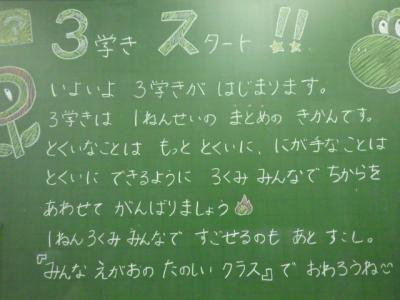 3学き スタート!!
いよいよ 3学きが はじまります。
3学きは 1ねんせいの まとめの きかんです。
とくいなことは もっと とくいに、にが手なことは
とくいに できるように 3くみ みんなで ちからを
あわせて がんばりましょう
1ねん3くみ みんなで すごせるのも あと すこし。
『みんな えがおの たのしい クラス』で おわろうね